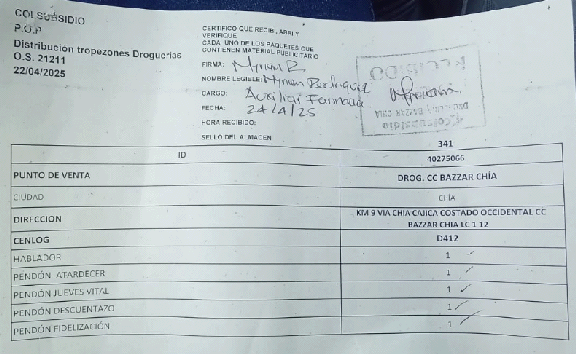 COLSUBSIDIO
P.O.P
Distribucion tropezones Droguerias
O.S. 21211
22/04/2025
CERTIFICO QUE RECIBI, ABRI Y
VERIFIQUE
CADA UNO DE LOS PAQUETES QUE
CONTIENEN MATERIAL PUBLICITARIO
FIRMA: Myriam R
NOMBRE LEGIBLE: Myriam
CARGO: Auxiliar Farmacia
FECHA: 24/4/25
HORA RECIBIDO:
SELLO DEL ALMACEN
RECIBIDO
Colsubsidio
341
ID 40275066
PUNTO DE VENTA DROG. CC BAZZAR CHÍA
CIUDAD CHÍA
DIRECCION KM 9 VIA CHIA CAJICA COSTADO OCCIDENTAL CC
BAZZAR CHIA LC 1 12
CENLOG D412
HABLADOR 1
PENDÓN ATARDECER 1
PENDÓN JUEVES VITAL 1
PENDÓN DESCUENTAZO 1
PENDÓN FIDELIZACIÓN 1